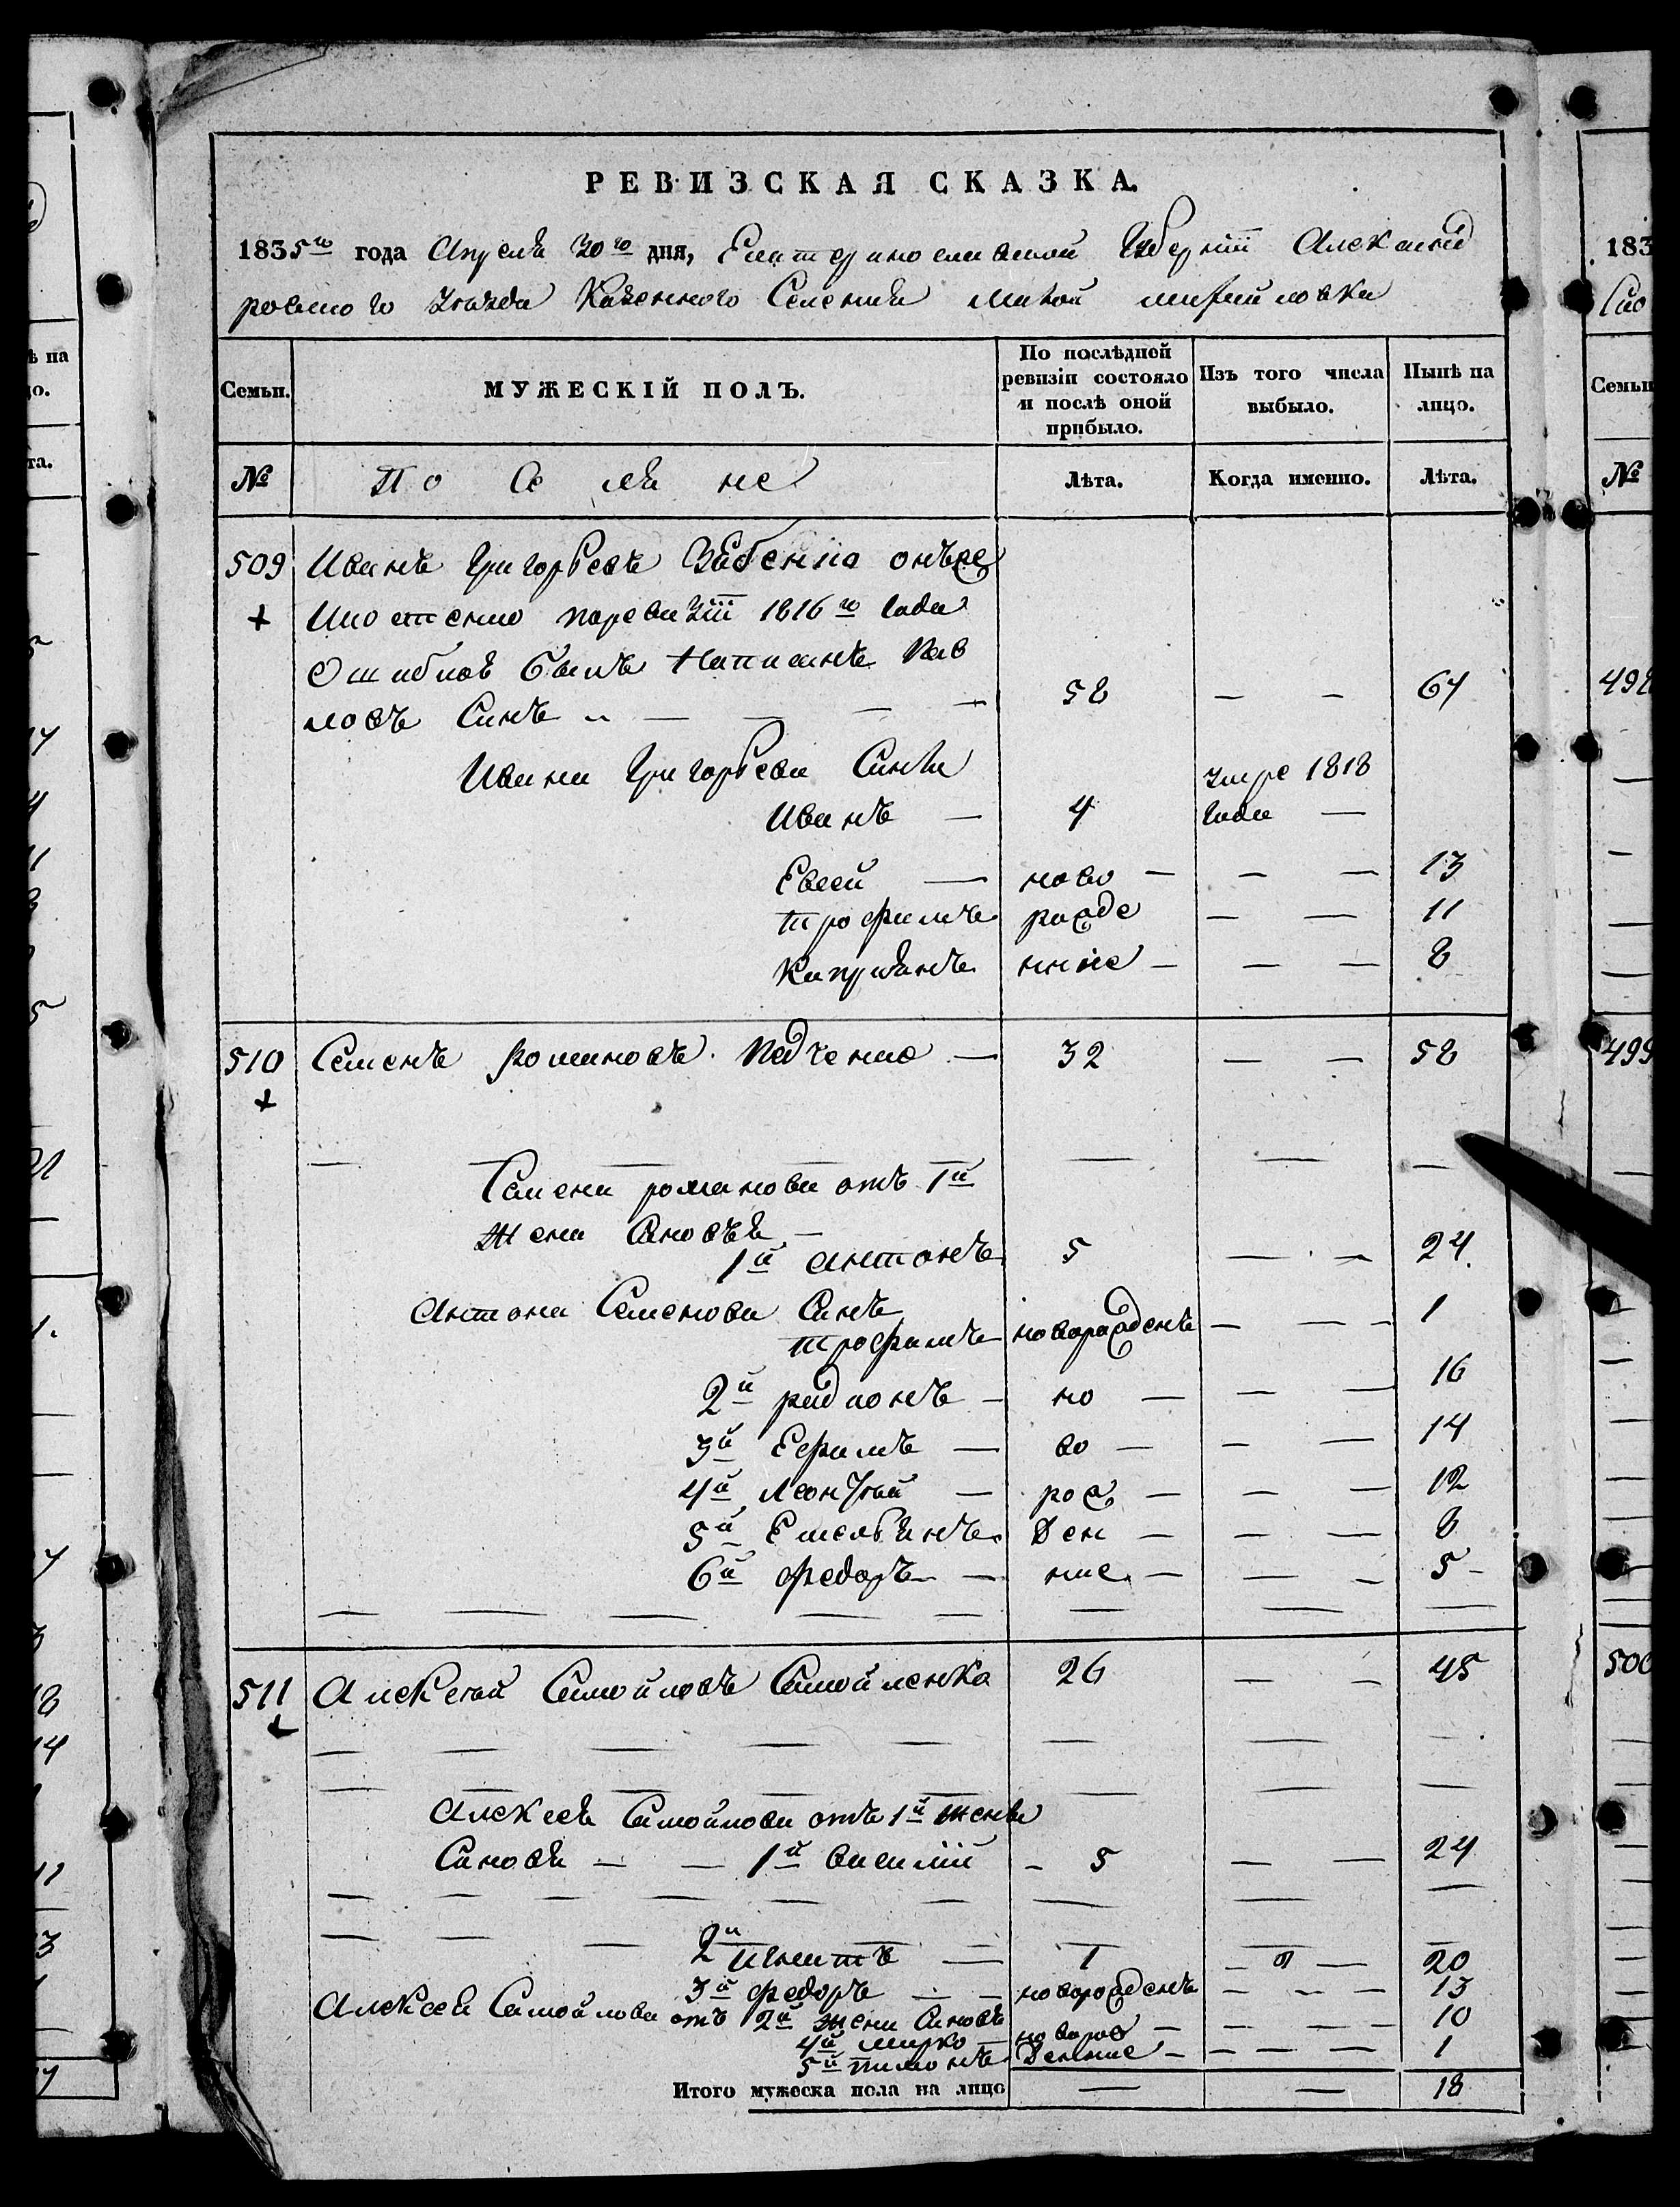 РЕВИЗСКАЯ СКАЗКА.
1835го года Апреля 30го дня, Екатеринославской Губерніи Александ
ровского Уезда Казенного Селения Малой Михайловки
Семьи. МУЖЕСКІЙ ПОЛЪ. По послѣдней ревизіи состояло и послѣ оной прибыло. Изъ того числа выбыло. Нынѣ на лицо.
№ По Се ля не Лѣта. Когда именно. Лѣта.
509 Иванъ Григорьевъ онъже
Игнотенко поревизіи 1816го Года
Ошибкоѣ былъ Написанъ Пав
ловъ Синъ 58 — — 67
Ивана Григорьева Сины
Иванъ — 4 умре 1818 Года —
Евсей — ново — — — 13
трофимъ рожде — — 11
Каприянъ нние — — — 8
510 Семенъ романовъ — 32 — — 58
Семена романова отъ 1й
жени Синовъя —
1й антонъ 5 — — 24.
Антона Семенова Синъ
трофимъ новорожденъ — — — 1
2й радионъ — но — — — 16
3й Ефимъ — во — — — 14
4й Леонтий — рож — — — 12
5й Емельянъ ден — — — 8
6й федоръ — ние — — — 5 —
511 Алексей Самойловъ Самойленко 26 — — 45
Алексея Самойлова отъ 1й жены
Синовя — — 1й василій — 5 — — 24
2й игнатъ — 1 — — 20
3й федоръ — — новорожденъ — — — 13
Алексея Самойлова отъ 2й жени Синовъ
4й марко — новорож — — — — 10
5й пимонъ дение — — — — — 1
Итого мужеска пола на лицо — — 18